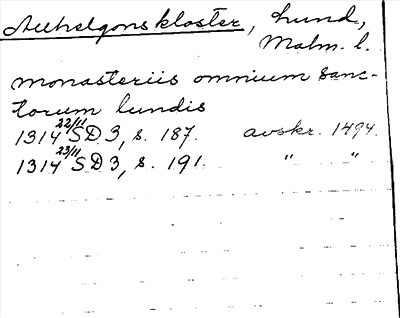 Allhelgonskloster, Lund,
Malm. l.
monasteriis omnium sanc-
torum lundis
1314 22/11 SD 3, s. 187. avskr. 1494.
1314 23/11 SD 3, s. 191. " "